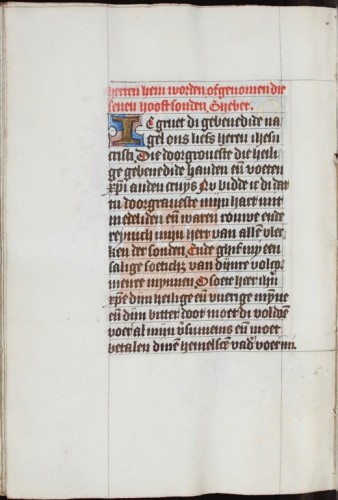 herten hem worden ofgenomen die
seuen hooft sonden Ghebet.
IC gruet di gebenedide na
gel ons liefs heren ihesu
cristi. Die doorgroueste die heili
ge gebenedide handen en̄ voeten
xp̄i anden cruys Nu bidde ic di dat
tu doorgraueste mijn hart mit
medeliden en̄ waren rouwe ende
reynich mijn hert van allē vlec
ken der sonden. Ende ghif mij een
salige soetich; van dijnre volco
menre mynnen. O soete heer ihū
xp̄e dijn heilige en̄ vuerige mȳne
en̄ dijn bitter doot moet di voldoē
voer al mijn en̄ moet
betalen dinē hemelscē vad̓ voer mi.